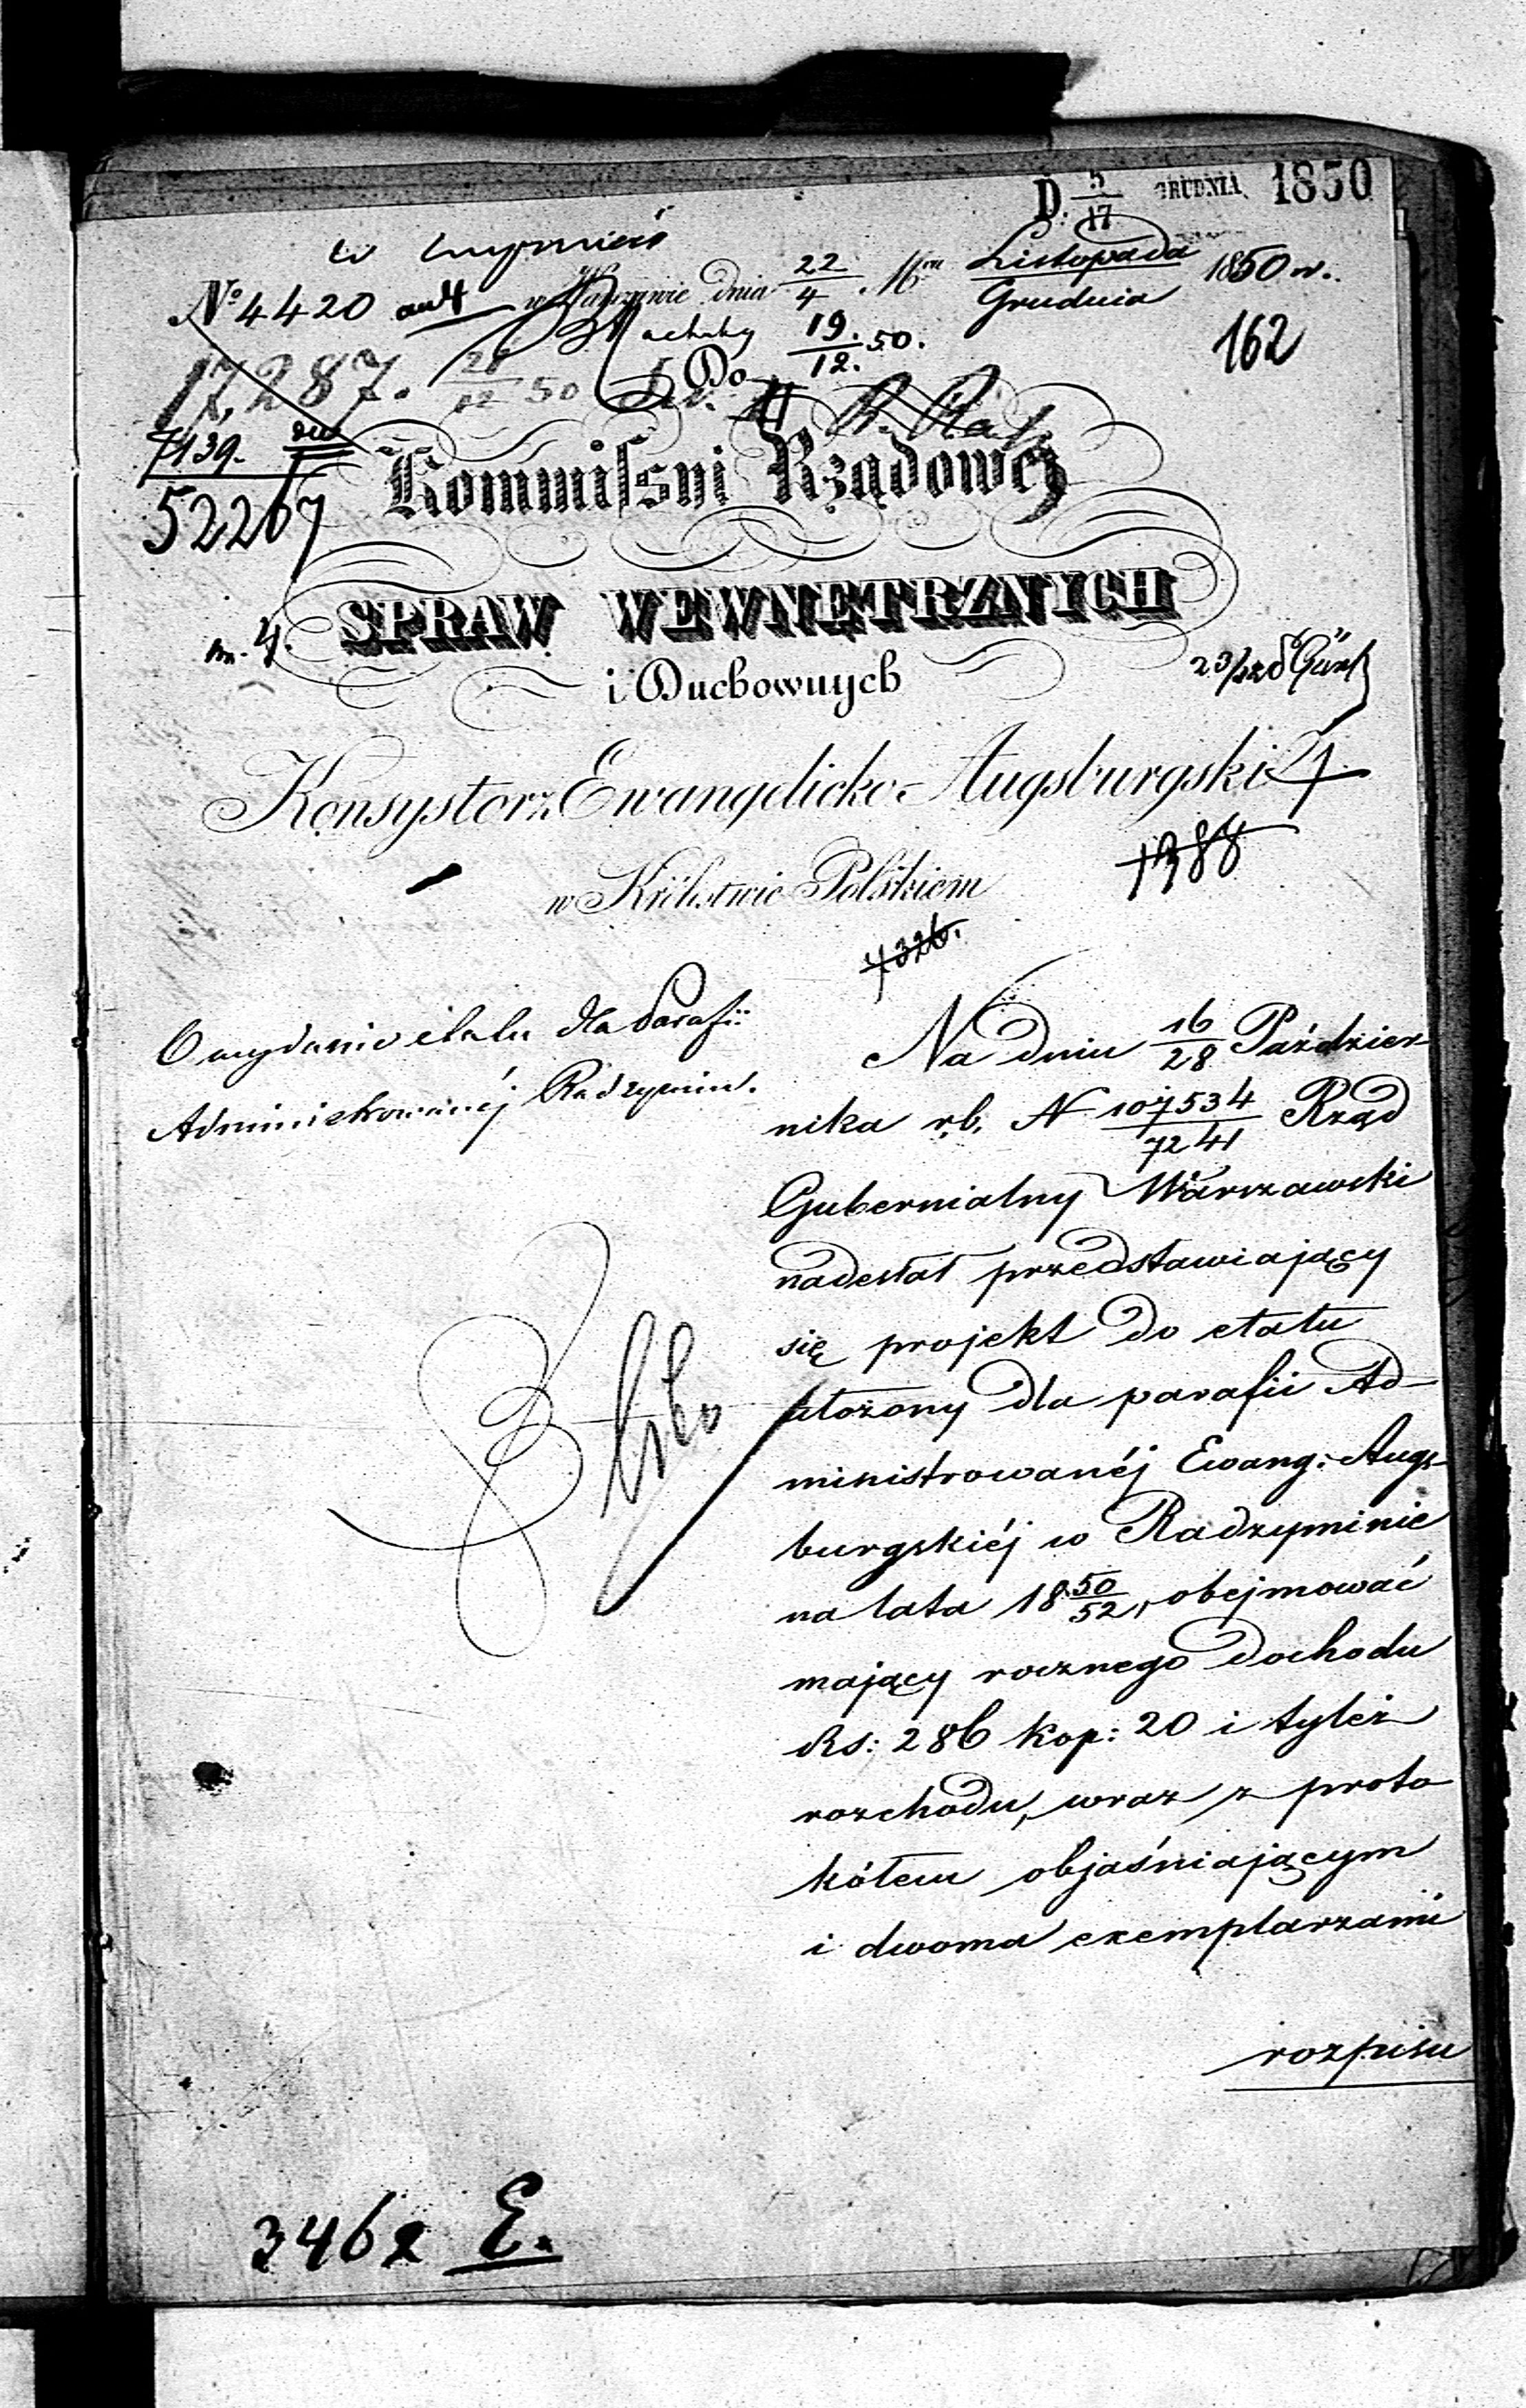 D. 5/17 GRUDNIA 1850
No 4420 w Warszawie dnia 22/4 Mca Listopada/Grudnia 1850 r.
19/12 50.
162
17,287. 50
Do
7139.
52267
Kommissyi Rządowej
SPRAW WEWNĘTRZNYCH
i Duchownych
Konsystorz Ewangelicko-Augsburgski
1388
w Królestwie Polskiem
7326.
O wydanie etatu dla Parafii
Administrowanéj Radzymin.
Na dniu 16/28 Paździer-
nika r.b. N 107534/7241 Rząd
Gubernialny Warszawski
nadesłał przedstawiający
się projekt do etatu
ułożony dla parafii Ad-
ministrowanéj Ewang: Augs-
burgskiéj w Radzyminie
na lata 18 50/52, obejmować
mający rocznego dochodu
Rs: 286 kop: 20 i tyleż
rozchodu, wraz z proto
kółem objaśniającym
i dwoma exemplarzami
rozpisu
3462 E.